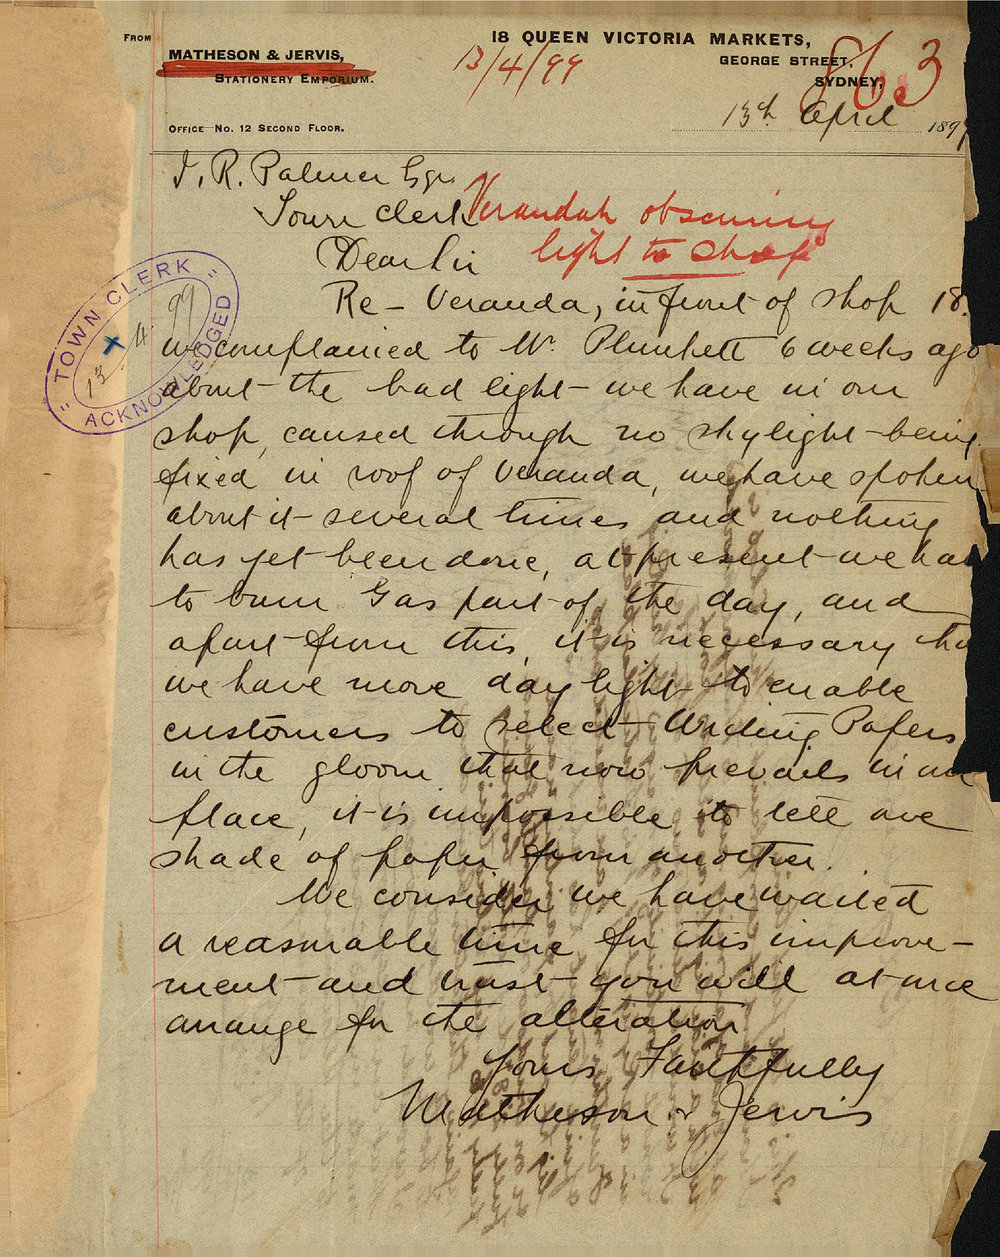 FROM
MATHESON & JERVIS,
STATIONERY EMPORIUM.
OFFICE No. 12 SECOND FLOOR.
18 QUEEN VICTORIA MARKETS,
GEORGE STREET,
SYDNEY,
13/4/99
863
13th April 1899
J. R. Palmer Esqr
Town Clerk
Verandah obscuring
light to shop
Dear Sir
TOWN CLERK
13 . 4 . 99
ACKNOWLEDGED
Re - Veranda, in front of shop 18.
we complained to Mr. Plunkett 6 weeks ago
about the bad light we have in our
shop, caused through no skylight being
fixed in roof of Veranda, we have spoken
about it several times and nothing
has yet been done, at present we ha
to burn Gas part of the day, and
apart from this, it is necessary tha
we have more day light to enable
customers to select Writing Papers
in the gloom that now prevails in our
place, it is impossible to tell one
shade of paper from another.
We consider we have waited
a reasonable time for this improve-
ment and trust you will at once
arrange for the alteration
Yours Faithfully
Matheson & Jervis